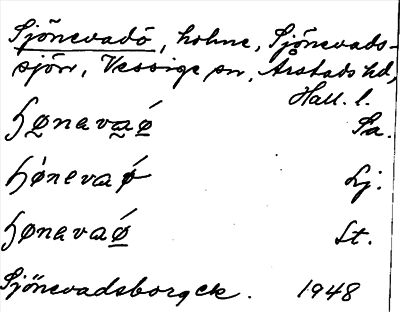 Sjönevadö, holme, Sjönevads-
sjön, Vessige sn, Årstads hd,
Hall. l.
ɧø̠neva̰ǿ Sa.
ɧǿnevaǿ Lj.
ɧønavaǿ St.
Sjönevadsborgck. 1948